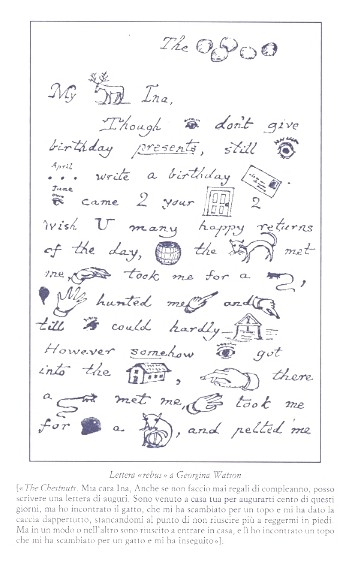 The
My Ina,
Though don't give
birthday presents, still
April
... write a birthday
June
came 2 your 2
wish U many happy returns
of the day, the met
me, took me for a ,
hunted me and
till could hardly
However somehow got
into the , there
a met me, took me
for a , and pelted me
Lettera «rebus» a Georgina Watson
[«The Chestnuts. Mia cara Ina, Anche se non faccio mai regali di compleanno, posso
scrivere una lettera di auguri. Sono venuto a casa tua per augurarti cento di questi
giorni, ma ho incontrato il gatto, che mi ha scambiato per un topo e mi ha dato la
caccia dappertutto, stancandomi al punto di non riuscire più a reggermi in piedi.
Ma in un modo o nell'altro sono riuscito a entrare in casa, e lì ho incontrato un topo
che mi ha scambiato per un gatto e mi ha inseguito»].